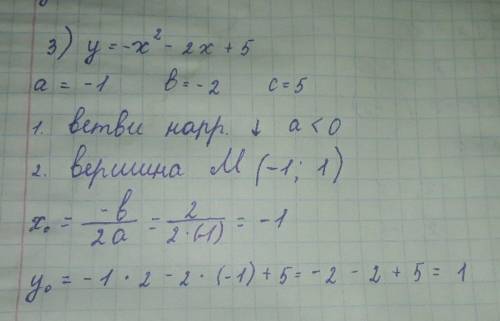 3) y = -x² - 2x + 5
a = -1 в = -2 c = 5
1. ветви напр. ↓ a < 0
2. вершина M (-1; 1)
x₀ = -в/2a = 2/2·(-1) = -1
y₀ = -1 · 2 - 2 · (-1) + 5 = -2 - 2 + 5 = 1